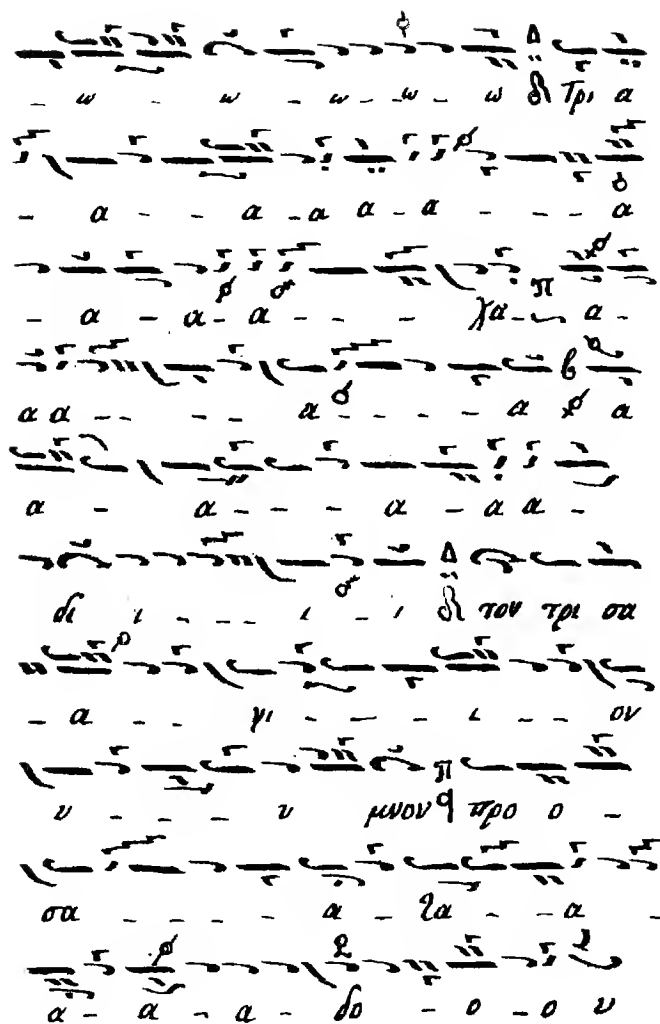 - ω - ω - ω - - ω - ω Τρι α
- α - - α - α α - α - - - α
- α - α - α - - - - χα - α -
α α - - - - α - - - - α α
α - α - - - α - α α -
δι ι - - - - ι - ι τον τρι σα
- α - - γι - - - - ι - - ον
υ - - - - υ μνον προ ο -
σα - - - - α - - - α -
α - α - α - δο - ο - ο υ